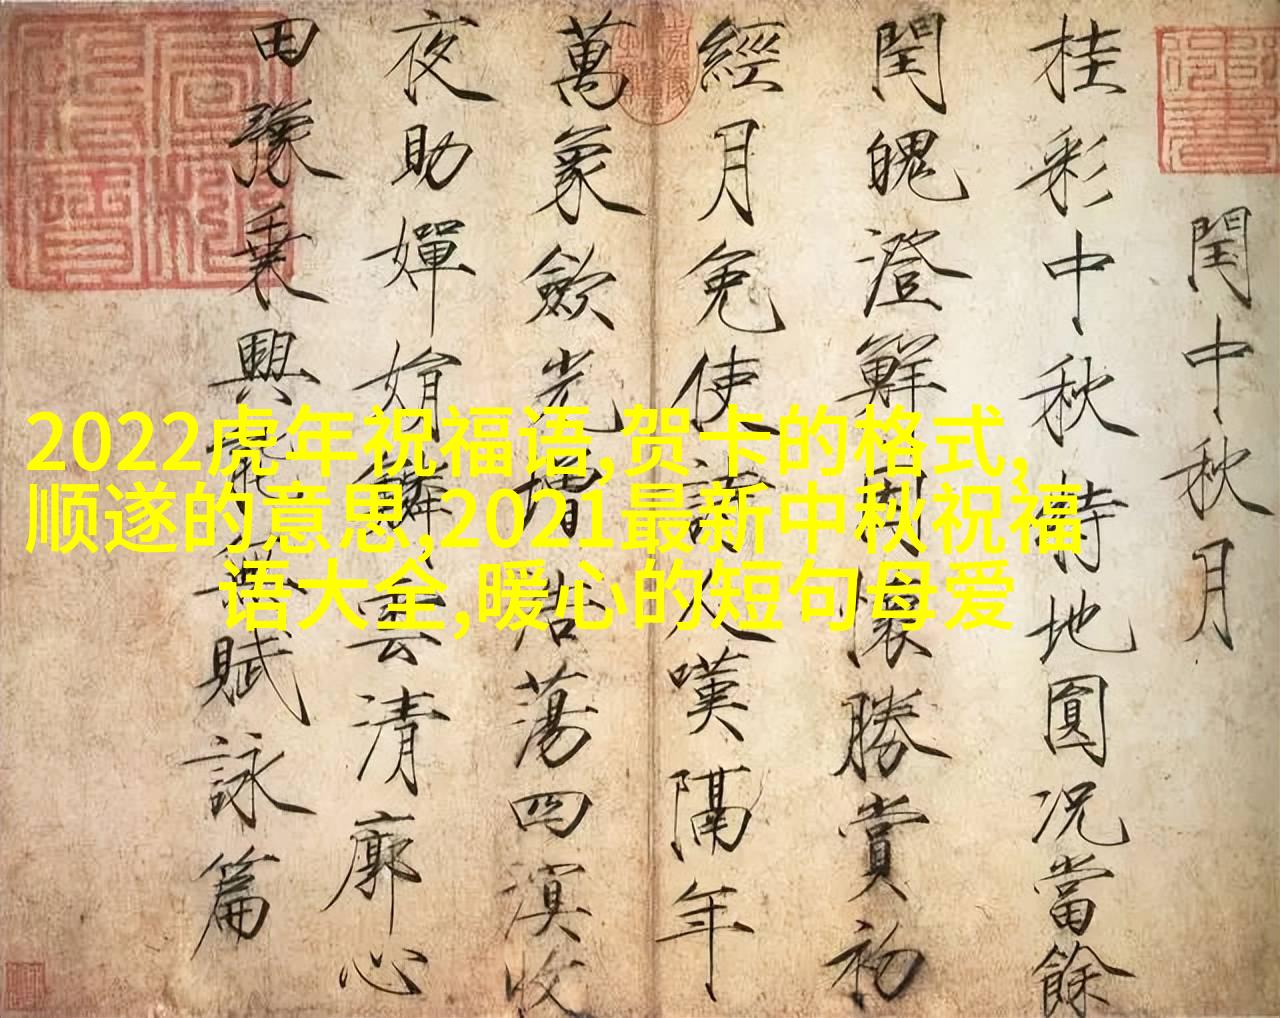 閏中秋月
桂彩中秋特地圓況當餘
閏魄澄鮮因懷勝賞初
經月免使詩人嘆隔年
萬象歛光增浩蕩四溟收
夜助嬋娟鱗雲清廓心
田豫乗興能無賦詠篇
2022虎年祝福语,贺卡的格式,
顺遂的意思,2021最新中秋祝福
语大全,暖心的短句母爱